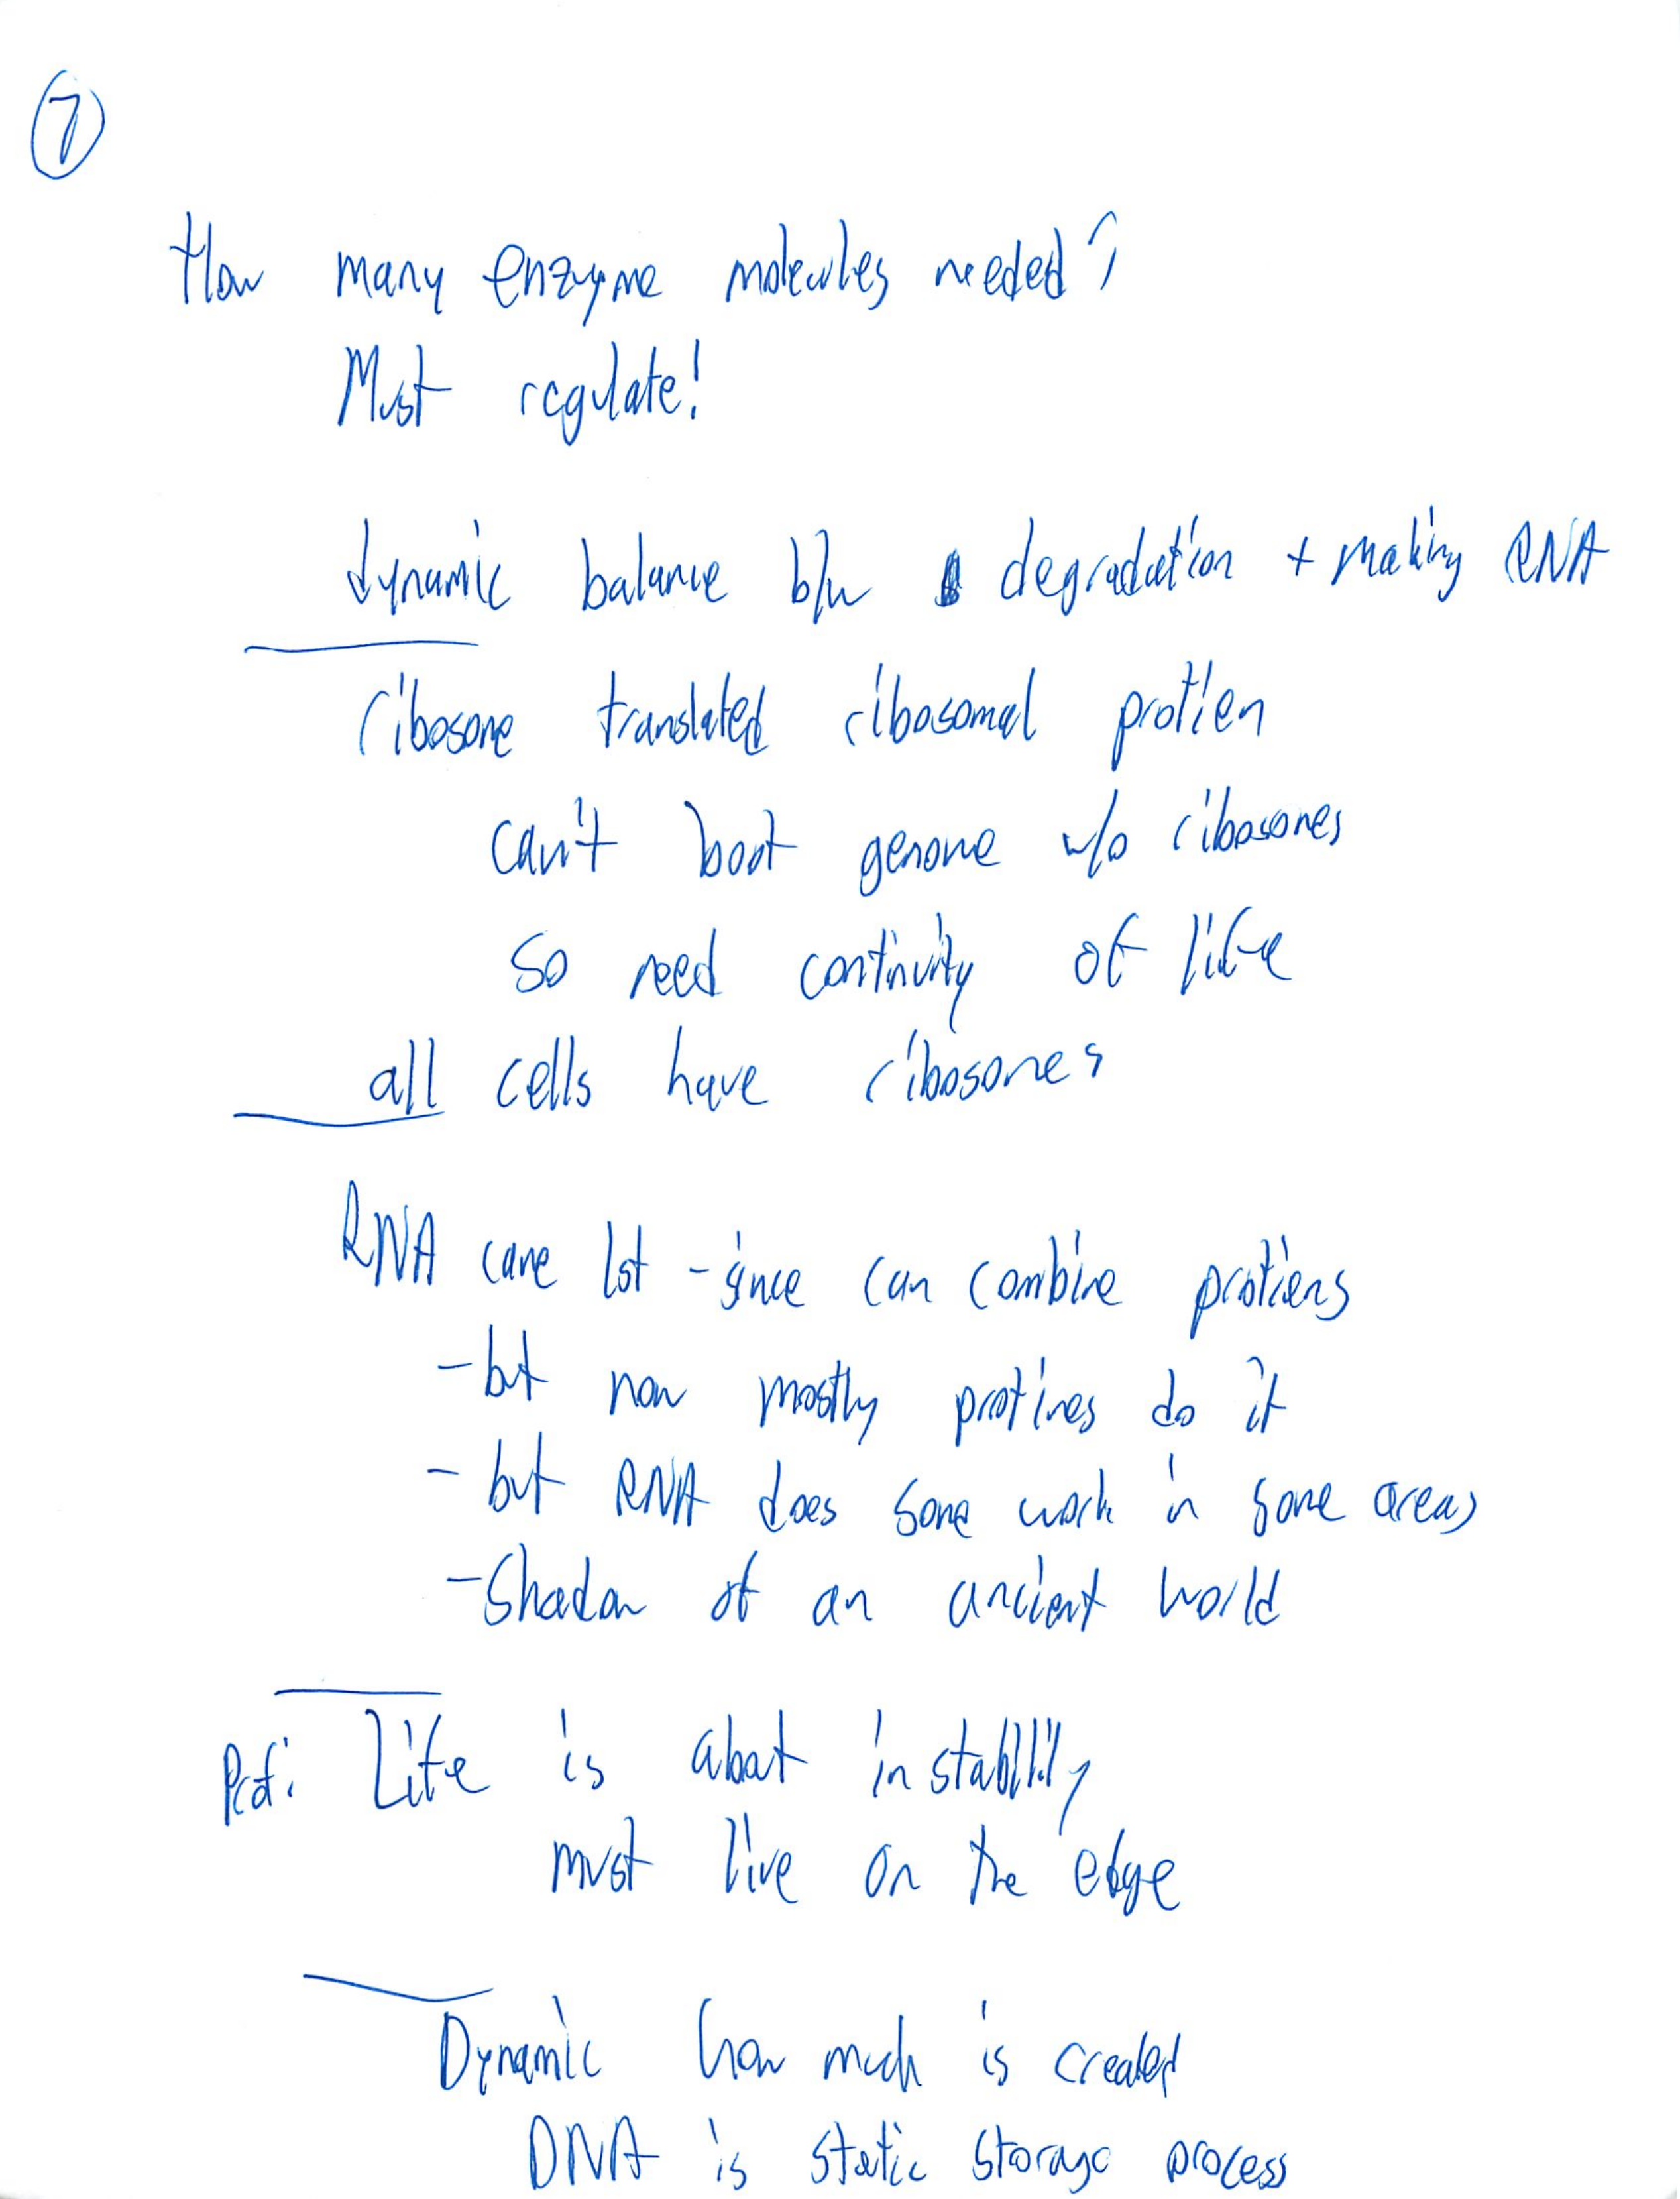 7
How many enzyme molecules needed?
Must regulate!
dynamic balance b/w degradation + making RNA
ribosome translated ribosomal protien
can't boot genome w/o ribosomes
so need continuity of life
all cells have ribosomes
RNA came 1st - since can combine protiens
- but now mostly protines do it
- but RNA does some work in some areas
- Shadow of an ancient world
Prof: Life is about instability
must live on the edge
Dynamic how much is created
DNA is static storage process